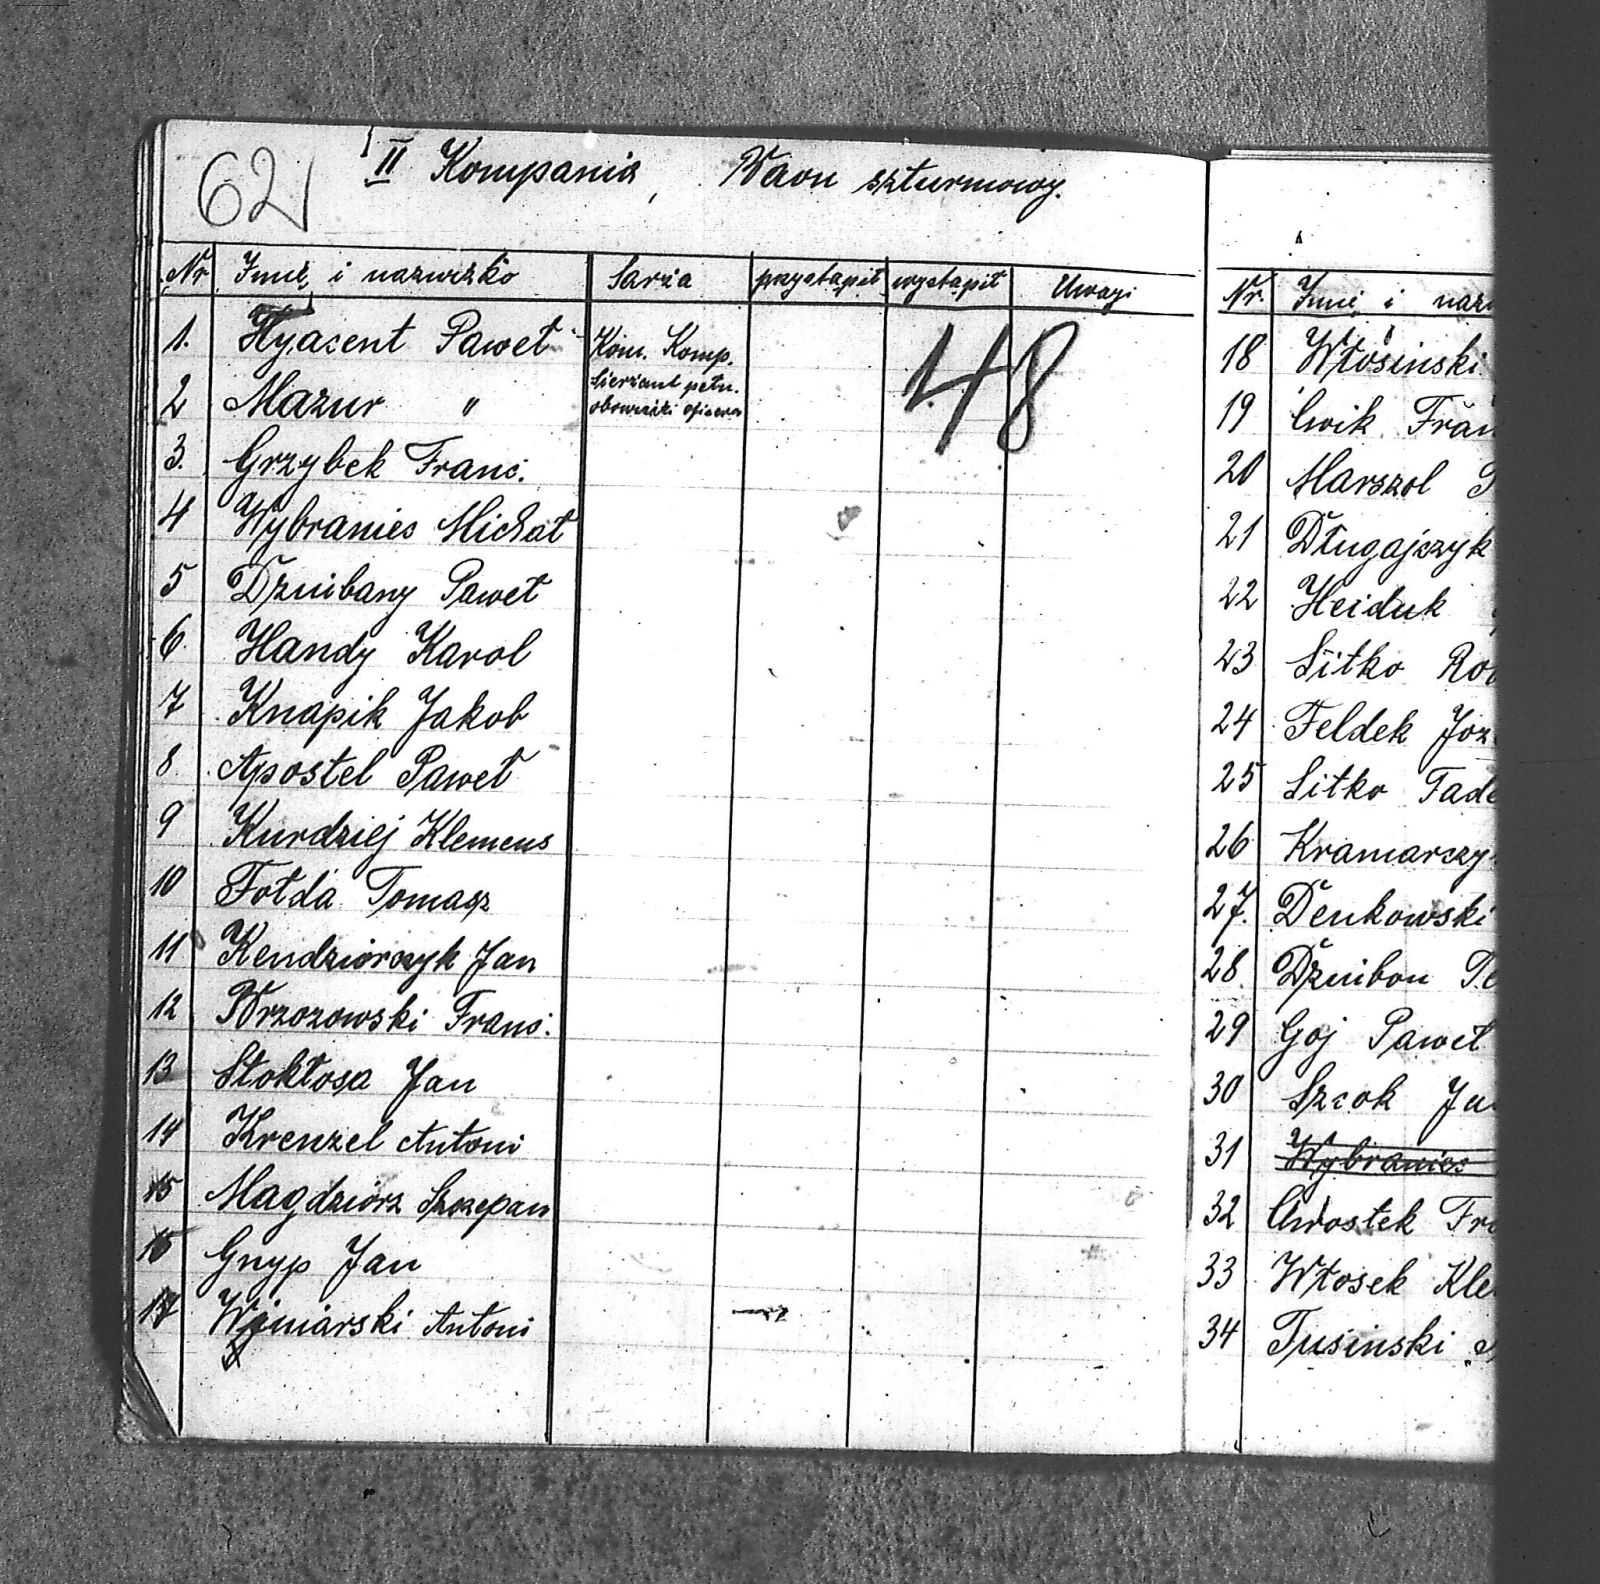 62
II Kompania, Baon szturmowy.
Nr Imię i nazwisko Sarża przystąpił wystąpił Uwagi
148
1. Hyacent Paweł Kom. Komp.
2 Mazur " Sierżant pełn. obowiązki oficera
3. Grzybek Franc.
4 Wybranies Michał
5 Dziubany Paweł
6. Handy Karol
7 Knapik Jakob
8. Apostel Paweł
9 Kurdziej Klemens
10 Fołda Tomasz
11 Kendziorczyk Jan
12 Brzozowski Franc.
13 Stokłosa Jan
14 Krenzel Antoni
15 Magdziorz Szczepan
15 Gnyp Jan
17 Winiarski Antoni
Nr. Imię i nazw
18 Włosinski
19 Cwik Fran
20 Marszol
21 Długajczyk
22 Heiduk
23 Sitko Ro
24 Feldek Józ
25 Sitko Tade
26 Kramarczy
27. Denkowski
28. Dziubon
29 Goj Paweł
30 Szcok Ja
31 Wybranies
32 Chrostek Fra
33 Włosek Kle
34 Tusinski